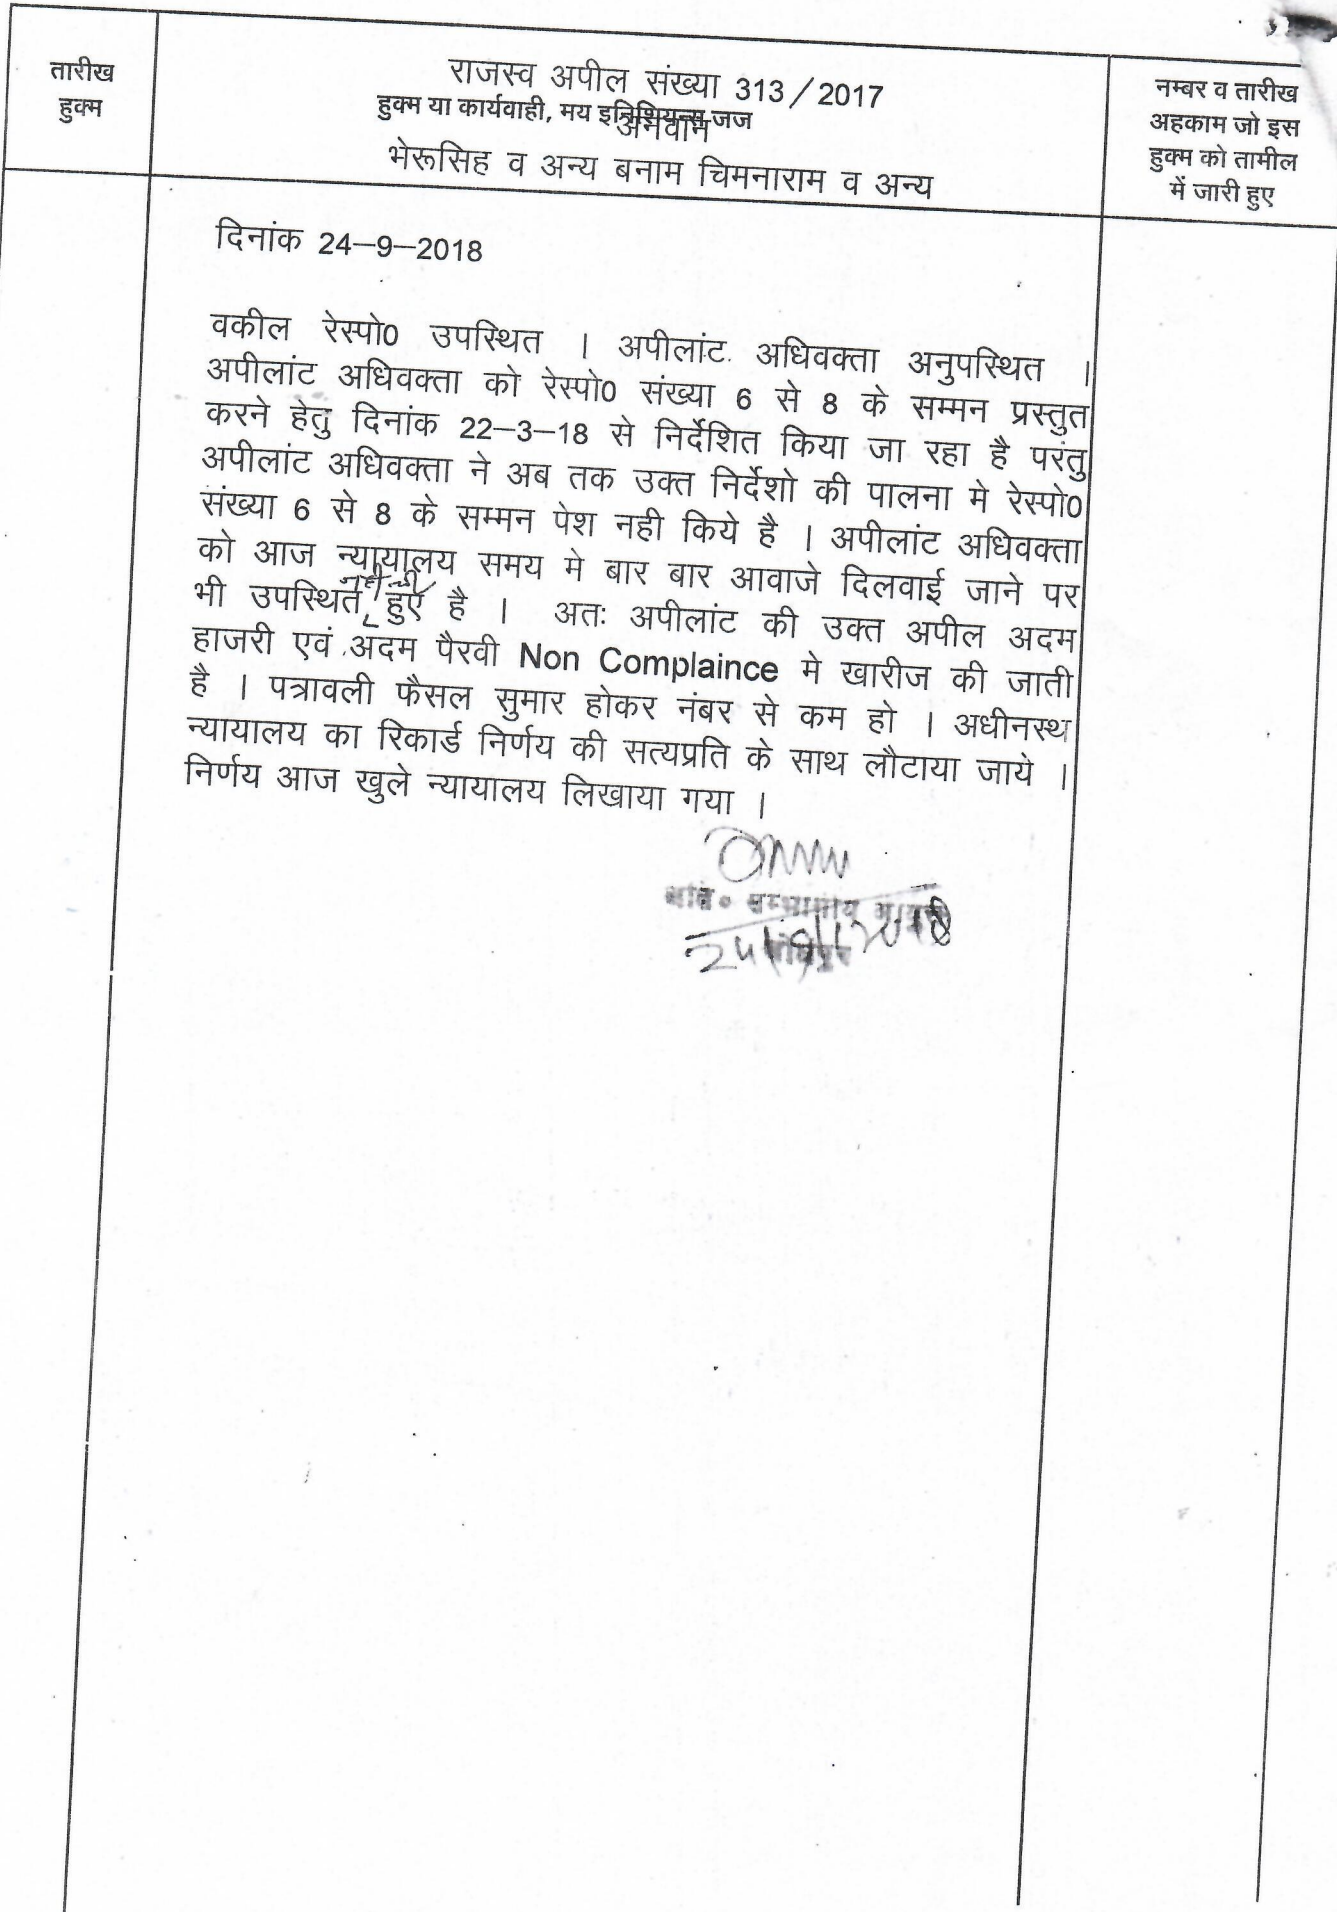 तारीख
हुक्म
राजस्व अपील संख्या 313/2017
हुक्म या कार्यवाही, मय इनिशियल्स जज
अनवान
भेरूसिह व अन्य बनाम चिमनाराम व अन्य
नम्बर व तारीख
अहकाम जो इस
हुक्म को तामील
में जारी हुए
दिनांक 24–9–2018
वकील रेस्पो0 उपस्थित । अपीलांट अधिवक्ता अनुपस्थित ।
अपीलांट अधिवक्ता को रेस्पो0 संख्या 6 से 8 के सम्मन प्रस्तुत
करने हेतु दिनांक 22–3–18 से निर्देशित किया जा रहा है परंतु
अपीलांट अधिवक्ता ने अब तक उक्त निर्देशो की पालना मे रेस्पो0
संख्या 6 से 8 के सम्मन पेश नही किये है । अपीलांट अधिवक्ता
को आज न्यायालय समय मे बार बार आवाजे दिलवाई जाने पर
भी उपस्थित नही हुऐ है । अतः अपीलांट की उक्त अपील अदम
हाजरी एवं अदम पैरवी Non Complaince मे खारीज की जाती
है । पत्रावली फैसल सुमार होकर नंबर से कम हो । अधीनस्थ
न्यायालय का रिकार्ड निर्णय की सत्यप्रति के साथ लौटाया जाये ।
निर्णय आज खुले न्यायालय लिखाया गया ।
24/9/2018